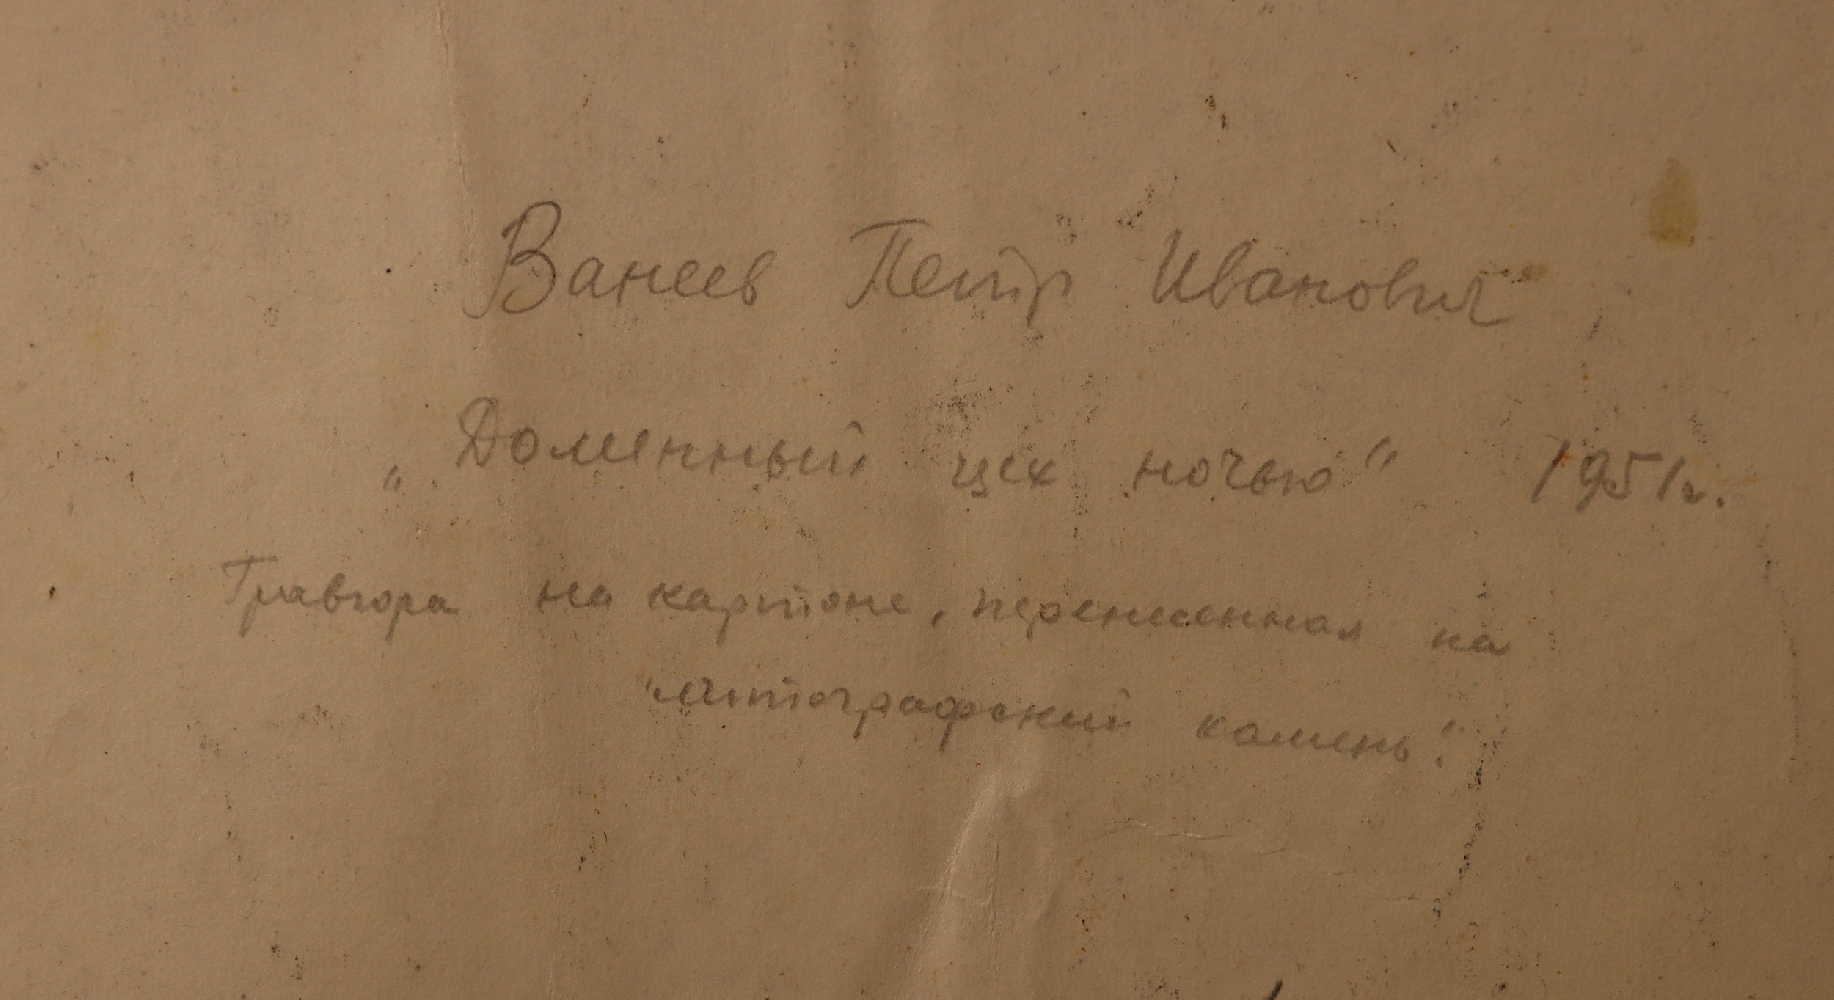 Ванеев Петр Иванович
„Доменный цех ночью" 1951г.
Гравюра на картоне, перенесенная на
"литографский камень".